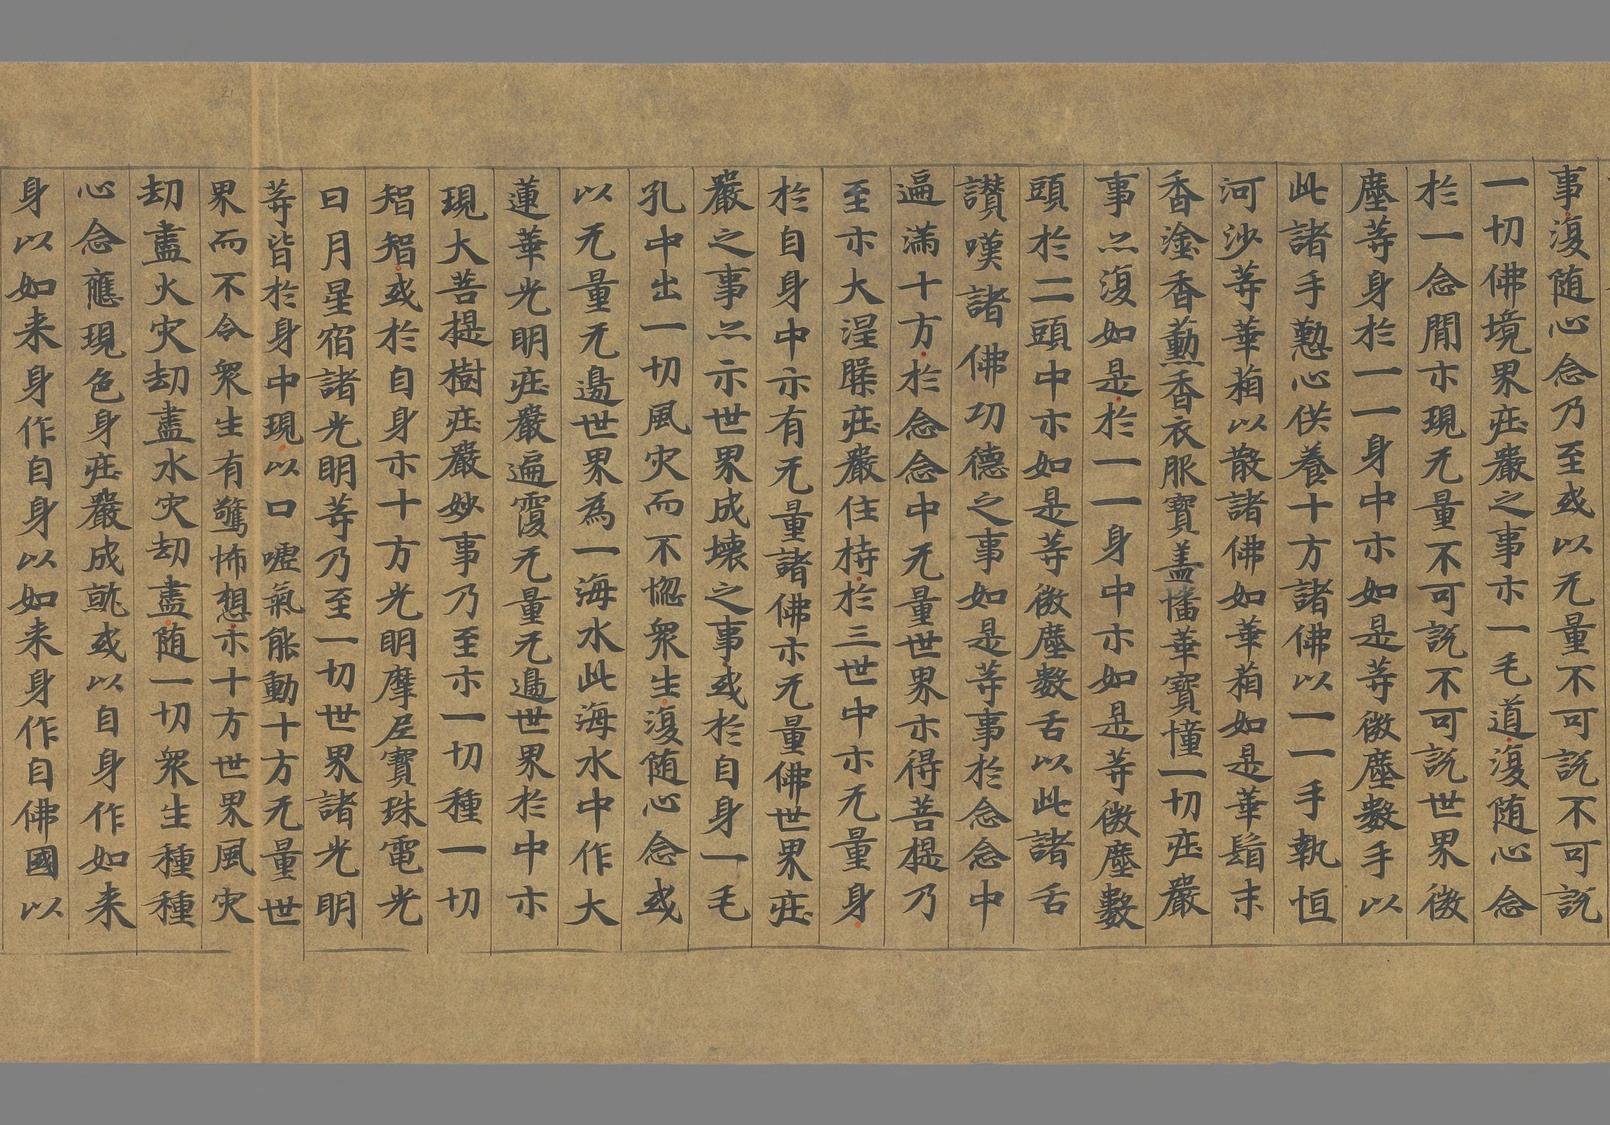 事復随心念乃至或以无量不可說不可說
一切佛境界庄嚴之事亦一毛道復随心念
於一念間亦現无量不可說不可說世界微
塵等身於一一身中亦如是等微塵數手以
此諸手懃心供養十方諸佛以一一手執恒
河沙等華葙以散諸佛如華葙如是華鬘末
香塗香勳香衣服寶盖幡華寶憧一切庄嚴
事亦復如是於一一身中亦如是等微塵數
頭於二頭中亦如是等微塵數舌以此諸舌
讃嘆諸佛功德之事如是等事於念念中
遍滿十方於念念中无量世界亦得菩提乃
至亦大涅縏庄嚴住持於三世中亦无量身
於自身中亦有无量諸佛亦无量佛世界庄
嚴之事亦示世界成壞之事或於自身一毛
孔中出一切風灾而不惱衆生復随心念或
以无量无邊世界為一海水此海水中作大
蓮華光明庄嚴遍覆无量无邊世界於中亦
現大菩提樹庄嚴妙事乃至亦一切種一切
智智或於自身亦十方光明摩尼寶珠電光
日月星宿諸光明等乃至一切世界諸光明
等皆於身中現以口嘘氣能動十方无量世
界而不令衆生有驚怖想亦十方世界風灾
劫盡火灾劫盡水灾劫盡随一切衆生種種
心念應現色身庄嚴成就或以自身作如来
身以如来身作自身以如来身作自佛國以